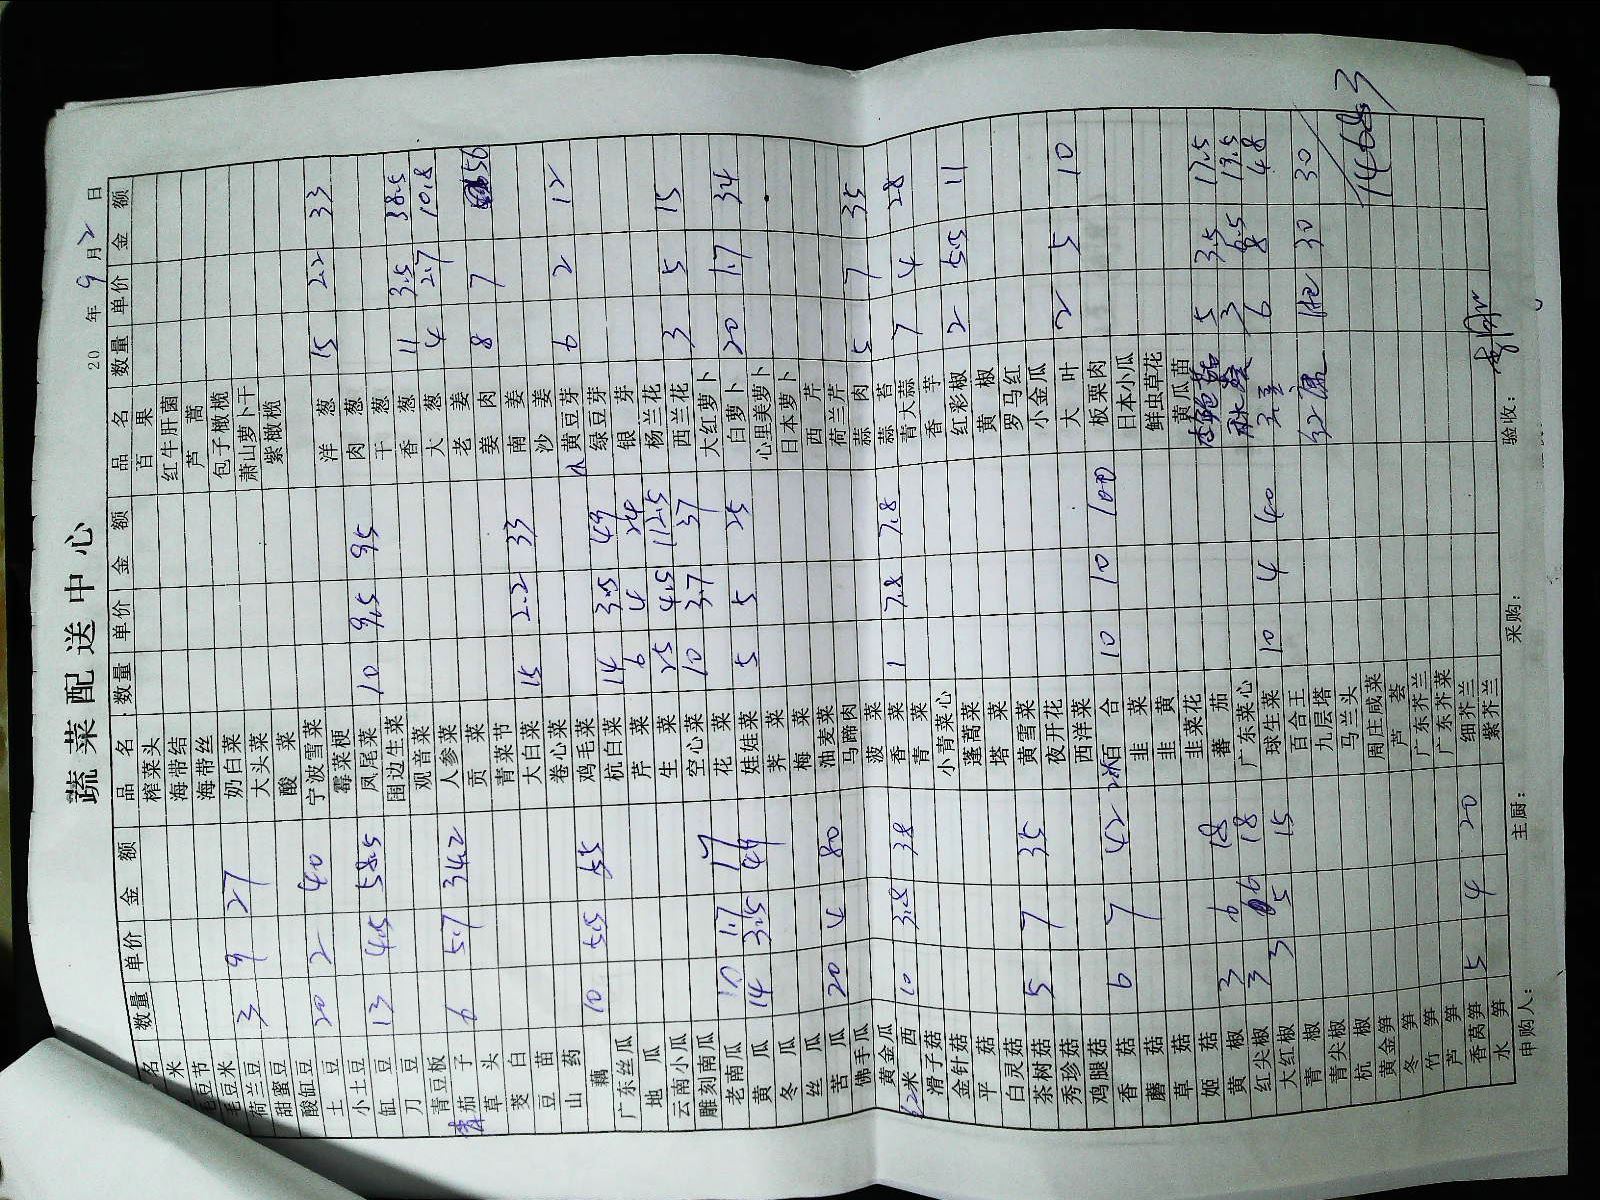 蔬菜配送中心
20 年 9 月 2 日
名 数量 单价 金额
米
毛豆节
毛豆米
荷兰豆 3 9 27
甜蜜豆
酸缸豆
土豆 20 2 40
小土豆
缸豆 13 4.5 58.5
刀豆
青豆板
茄子 6 5.7 34.2
草头
茭白
豆苗
山药
藕 10 5.5 55
广东丝瓜
地瓜
云南小瓜
雕刻南瓜
老南瓜 10 1.7 17
黄瓜 14 3.5 49
冬瓜
丝瓜
苦瓜 20 4 80
佛手瓜
黄金瓜
米西 10 3.8 38
滑子菇
金针菇
平菇
白灵菇
茶树菇 5 7 35
秀珍菇
鸡腿菇
香菇 6 7 42
蘑菇
草菇
姬菇
黄椒 3 6 18
红尖椒 3 6 18
大红椒 3 5 15
青椒
青尖椒
杭椒
黄金笋
冬笋
竹笋
芦笋
香莴笋 5 4 20
水笋
品名 数量 单价 金额
榨菜头
海带结
海带丝
奶白菜
大头菜
酸菜
宁波雪菜
霉菜梗
凤尾菜 10 9.5 95
围边生菜
观音菜
人参菜
贡菜
青菜节
大白菜 15 2.2 33
卷心菜
鸡毛菜
杭白菜 14 3.5 49
芹菜 6 4 24
生菜 25 4.5 112.5
空心菜 10 3.7 37
花菜
娃娃菜 5 5 25
荠菜
梅菜
油麦菜
马蹄肉
菠菜
香菜 1 7.8 7.8
青菜
小青菜心
蓬蒿菜
塔菜
黄雪菜
夜开花
西洋菜
百合 10 10 100
韭菜
韭黄
韭菜花
蕃茄
广东菜心
球生菜 10 4 40
百合王
九层塔
马兰头
周庄咸菜
芦荟
广东芥兰
广东芥菜
细芥兰
紫芥兰
品名 数量 单价 金额
百果
红牛肝菌
芦蒿
包子橄榄
萧山萝卜干
紫橄榄
洋葱 15 2.2 33
肉葱
干葱
香葱 11 3.5 38.5
大葱 4 2.7 10.8
老姜
姜肉 8 7 56
南姜
沙姜
黄豆芽 6 2 12
绿豆芽
银芽
杨兰花
西兰花 3 5 15
大红萝卜
白萝卜 20 1.7 34
心里美萝卜
日本萝卜
西芹
荷兰芹
蒜肉 5 7 35
蒜苔
青大蒜 7 4 28
香芋
红彩椒 2 5.5 11
黄椒
罗马红
小金瓜
大叶 2 5 10
板栗肉
日本小瓜
鲜虫草花
黄瓜苗
5 3.5 17.5
3 6.5 19.5
6 8 48
30 30
申购人： 主厨： 采购： 验收：